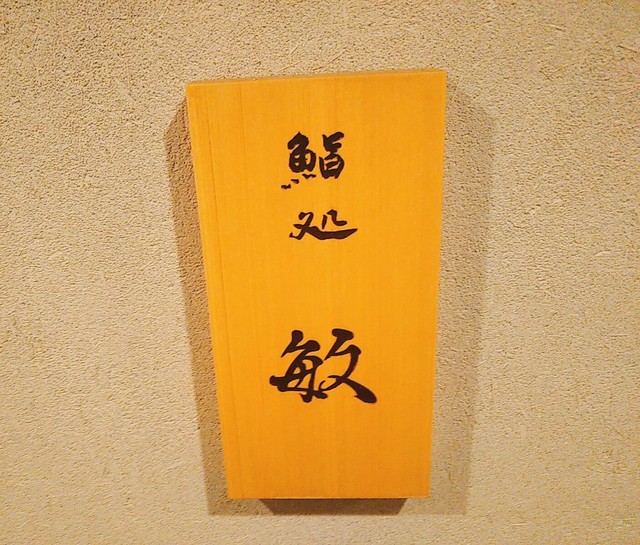 鮨処 敏